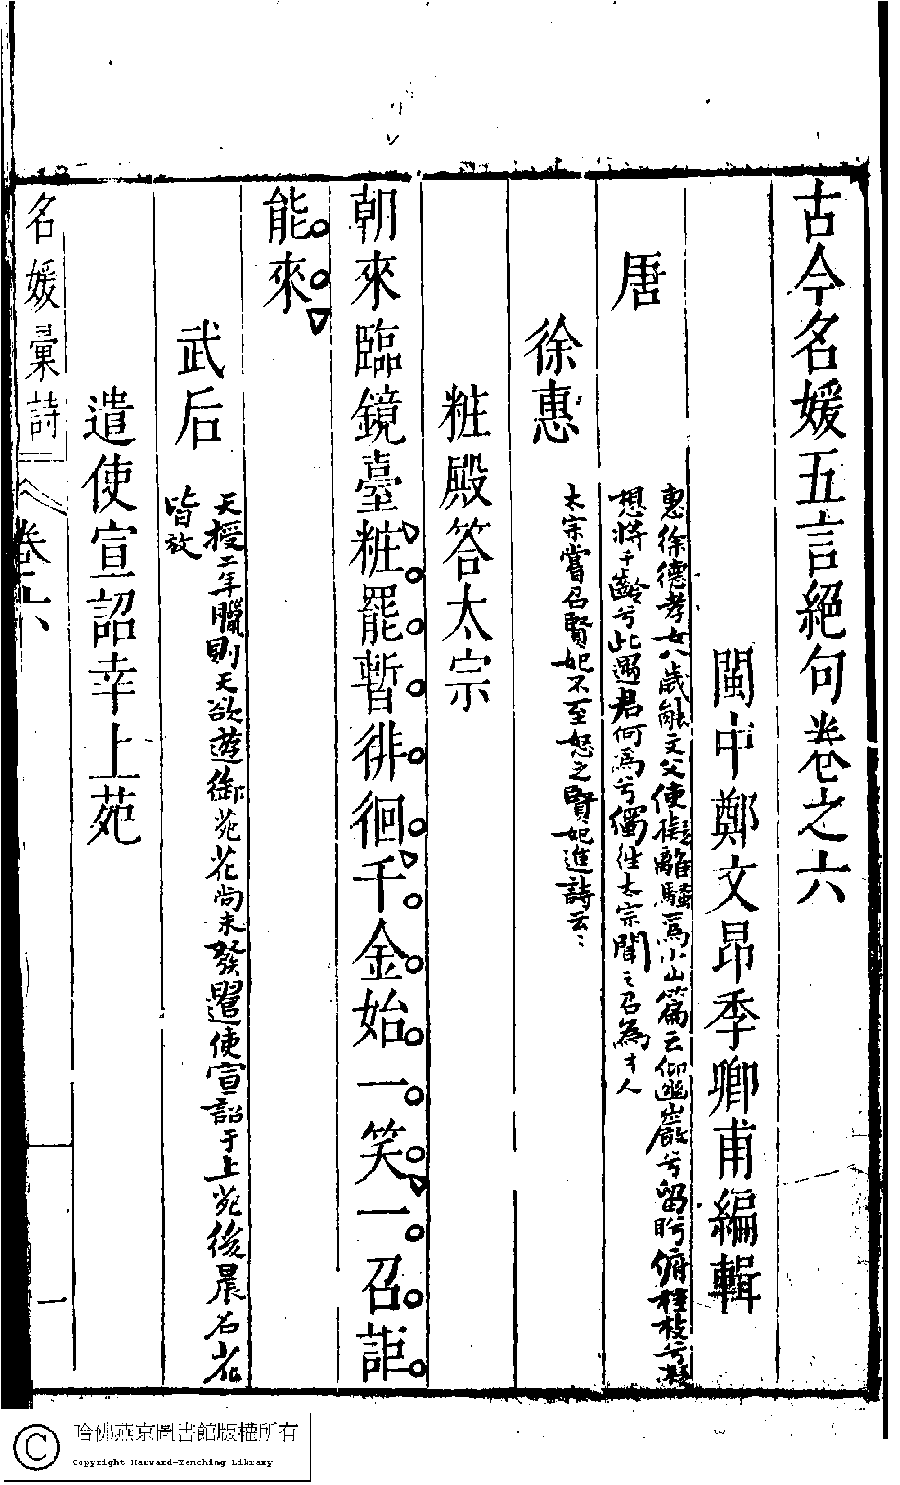 古今名媛五言絕句卷之六
閩中鄭文昂季卿甫編輯
唐
惠徐德孝女八歲能文父使擬離騷爲小山篇云仰幽巖兮留盻俯桂枝兮凝
想將千齡兮此遇君何爲兮獨徃太宗聞之召為才人
徐惠
太宗嘗召賢妃不至怒之賢妃進詩云〻
粧殿答太宗
朝來臨鏡臺粧罷暫徘徊千金始一笑一召詎
能來
武后
天授二年臘則天欲遊御苑花尚未發遣使宣詔于上苑後晨名花
皆放
遣使宣詔幸上苑
名媛彙詩
卷六
一
哈佛燕京圖書館版權所有
Copyright Harvard-Yenching Library